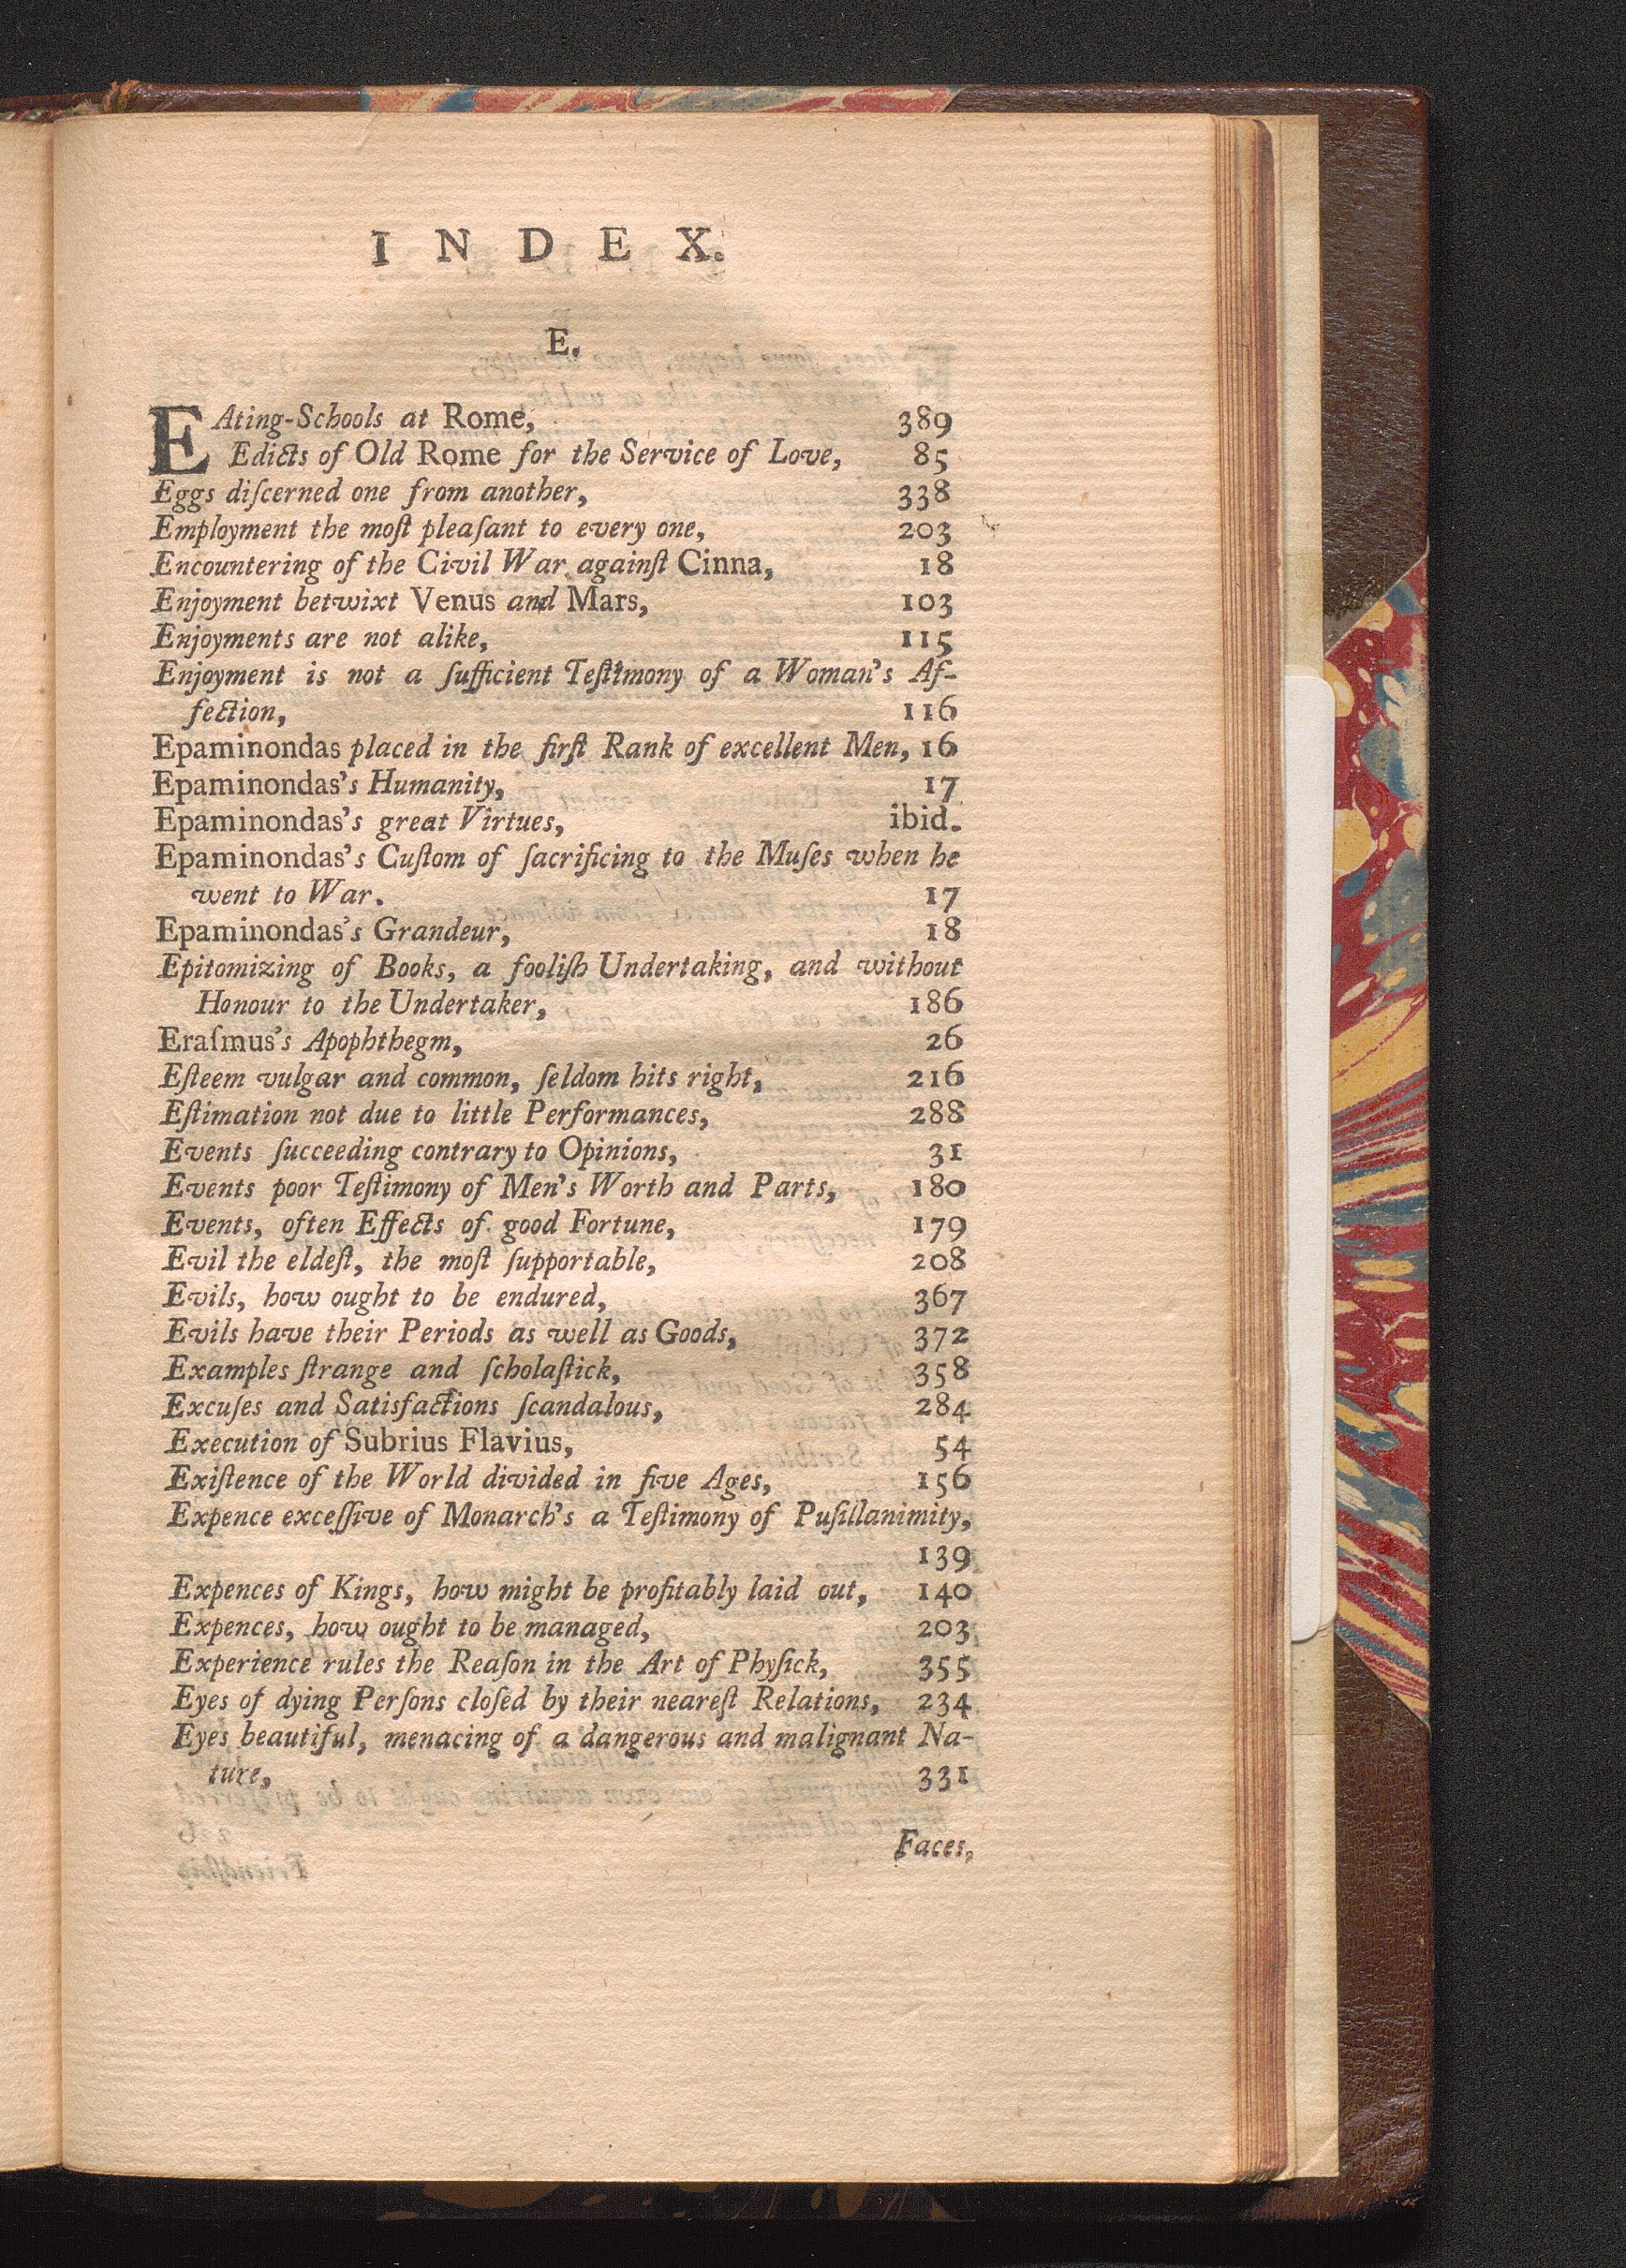 INDEX.
E.
EAting-Schools at Rome, 389
Edicts of Old Rome for the Service of Love, 85
Eggs diſcerned one from another, 338
Employment the moſt pleaſant to every one, 203
Encountering of the Civil War againſt Cinna, 18
Enjoyment betwixt Venus and Mars, 103
Enjoyments are not alike, 115
Enjoyment is not a ſufficient Teſtimony of a Woman's Af-
fection, 116
Epaminondas placed in the firſt Rank of excellent Men, 16
Epaminondas's Humanity, 17
Epaminondas's great Virtues, ibid.
Epaminondas's Cuſtom of ſacrificing to the Muſes when he
went to War. 17
Epaminondas's Grandeur, 18
Epitomizing of Books, a fooliſh Undertaking, and without
Honour to the Undertaker, 186
Eraſmus's Apophthegm, 26
Eſteem vulgar and common, ſeldom hits right, 216
Eſtimation not due to little Performances, 288
Events ſucceeding contrary to Opinions, 31
Events poor Teſtimony of Men's Worth and Parts, 180
Events, often Effects of good Fortune, 179
Evil the eldeſt, the moſt ſupportable, 208
Evils, how ought to be endured, 367
Evils have their Periods as well as Goods, 372
Examples ſtrange and ſcholaſtick, 358
Excuſes and Satisfactions ſcandalous, 284
Execution of Subrius Flavius, 54
Exiſtence of the World divided in five Ages, 156
Expence exceſſive of Monarch's a Teſtimony of Puſillanimity,
139
Expences of Kings, how might be profitably laid out, 140
Expences, how ought to be managed, 203
Experience rules the Reaſon in the Art of Phyſick, 355
Eyes of dying Perſons cloſed by their neareſt Relations, 234
Eyes beautiful, menacing of a dangerous and malignant Na-
ture, 331
Faces,